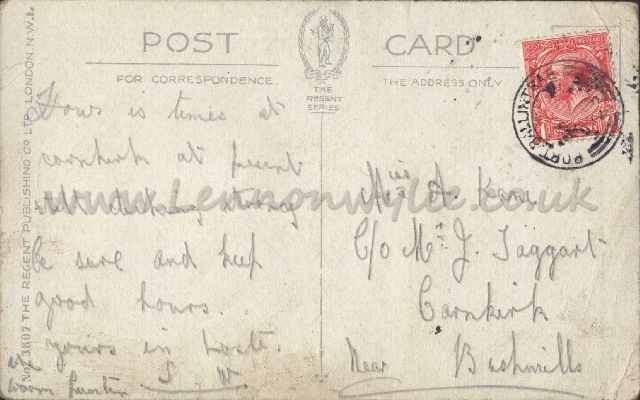 POST CARD
FOR CORRESPONDENCE.
THE ADDRESS ONLY
THE
REGENT
SERIES
No. 3807 THE REGENT PUBLISHING CO LTD, LONDON, N.W.1.
PORTBALLINTRAE
www.Lennonwylie.co.uk
Hows is times at
cornkirk at present
still strong
be sure and keep
good hours.
yours in haste.
S W
Miss A. Kane
C/o Mr J. Taggart
Carnkirk
Near Bushmills